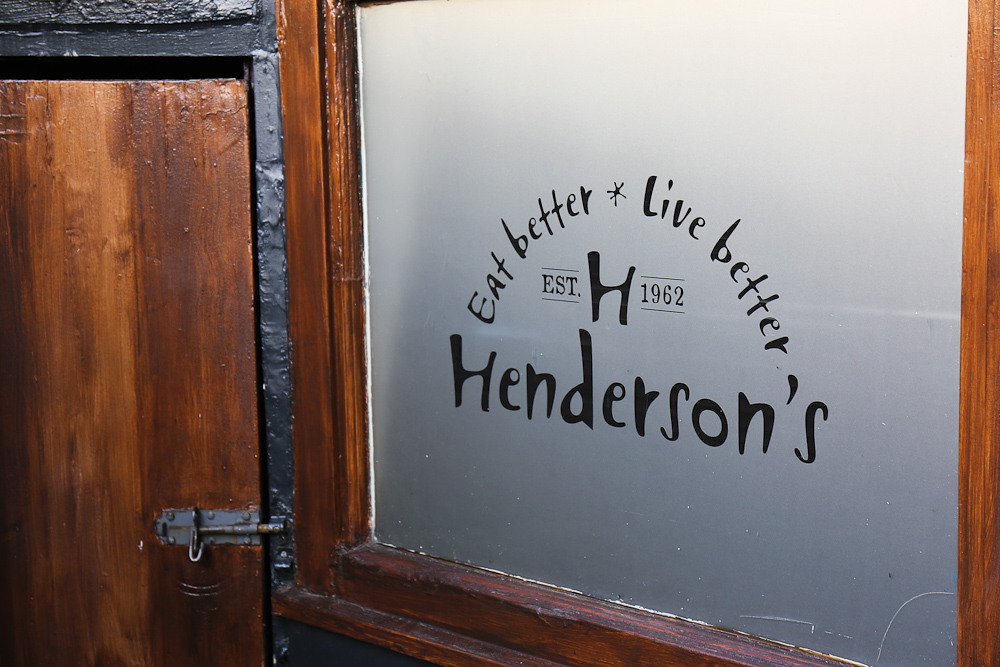 Eat better * Live better
EST. H 1962
Henderson's